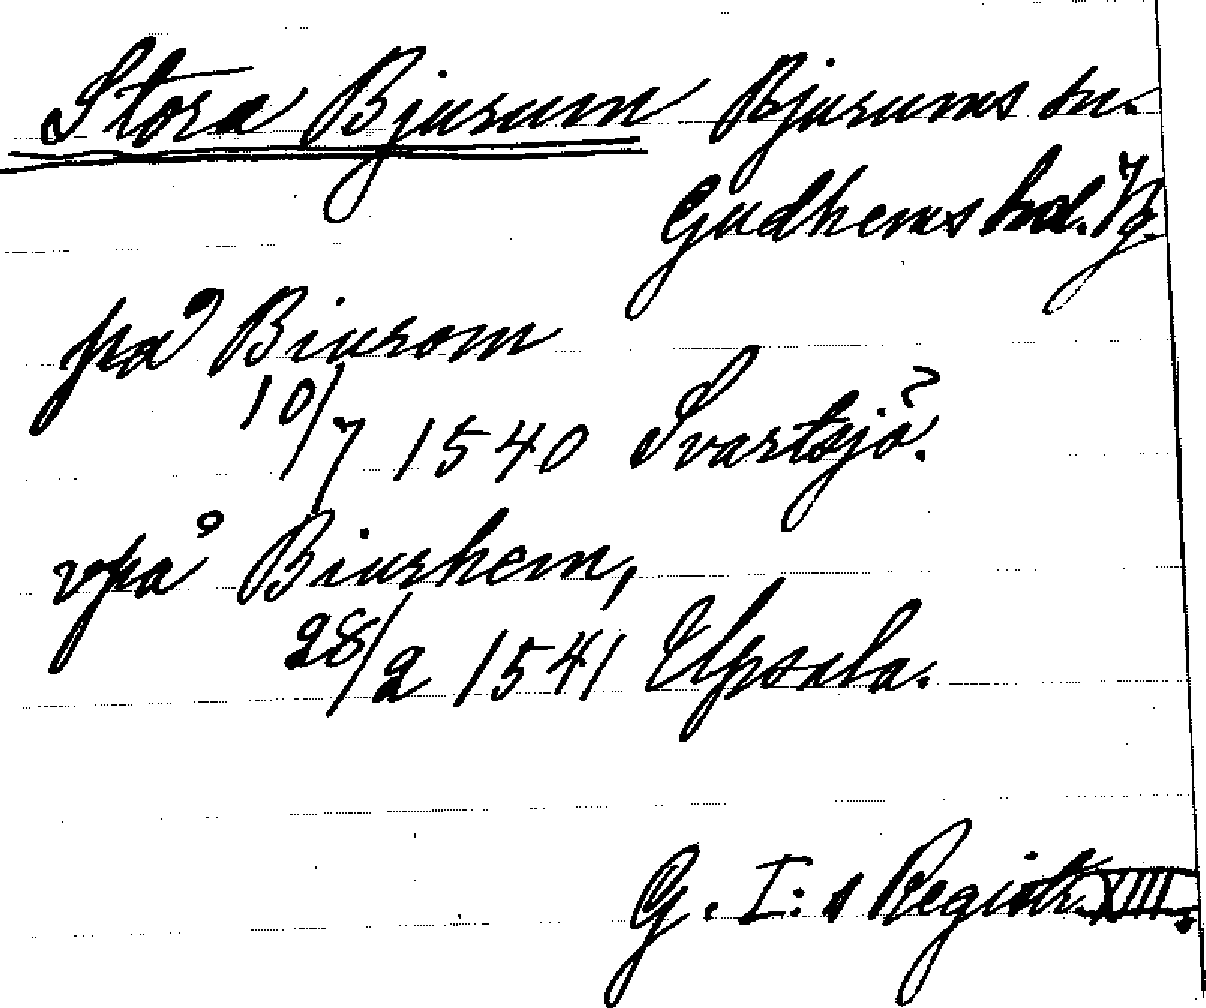 Stora Bjurum Bjurums sn.
Gudhems hd. Vg.
på Biurom
10/7 1540 Svartsjö.
vpå Biurhem,
28/2 1541 Upsala.
G. I:s Registr. XIII.